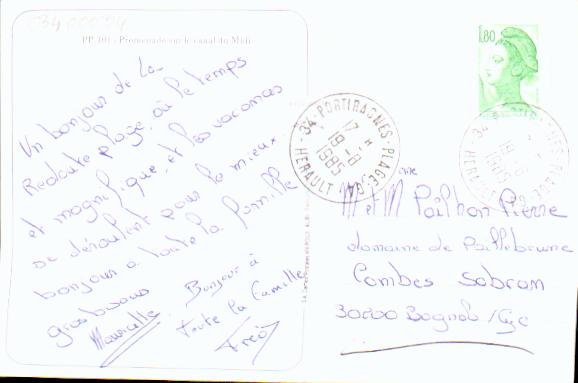 034 00004
PP 101 - Promenade sur le canal du Midi
Un bonjour de la
Redoute plage, où le temps
et magnifique, et les vacances
se déroulent pour le mieux
bonjour a toute la famille
gros bisous
Mauricette
Bonjour à
toute la famille
Fred
1,80
34 - PORTIRAGNES-PLAGE - GA
17 H
19 - 8
1985
HERAULT
M et M Pailhon Pierre
domaine de Paillebrune
Combes Sabran
30200 Bagnols/Cèze